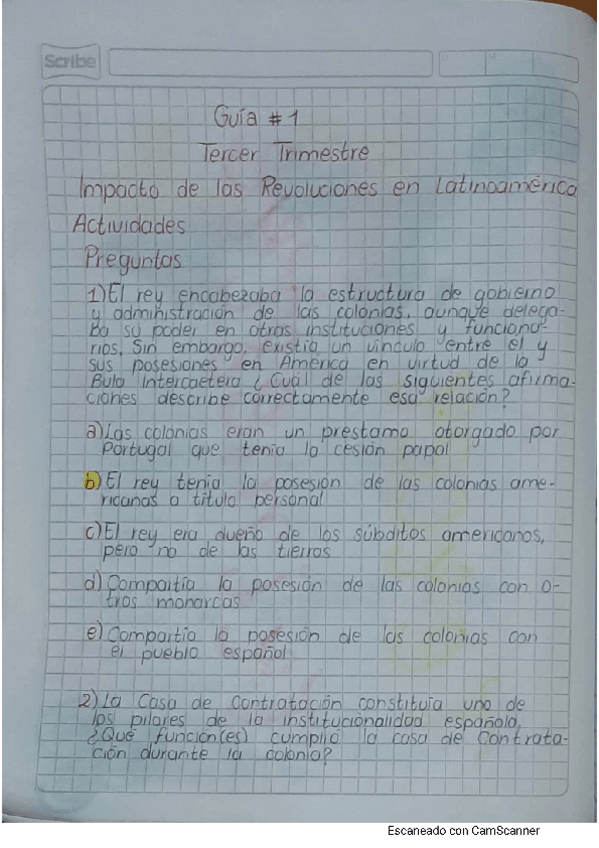 Scribe
Guía #1
Tercer Trimestre
Impacto de las Revoluciones en Latinoamérica
Actividades
Preguntas
1) El rey encabezaba la estructura de gobierno
y administración de las colonias, aunque delega-
ba su poder en otras instituciones y funciona-
rios. Sin embargo, existía un vínculo entre el y
sus posesiones en América en virtud de la
Bula Intercaetera ¿Cuál de las siguientes afirma-
ciones describe correctamente esa relación?
a) Las colonias eran un prestamo otorgado por
Portugal que tenia la cesión papal
b) El rey tenia la posesión de las colonias ame-
ricanas a titulo personal
c) El rey era dueño de los súbditos americanos,
pero no de las tierras
d) Compartía la posesión de las colonias con o-
tros monarcas
e) Compartía la posesión de las colonias con
el pueblo español
2) La Casa de Contratación constituía uno de
los pilares de la institucionalidad española,
¿Qué función(es) cumplió la casa de Contrata-
ción durante la colonia?
Escaneado con CamScanner